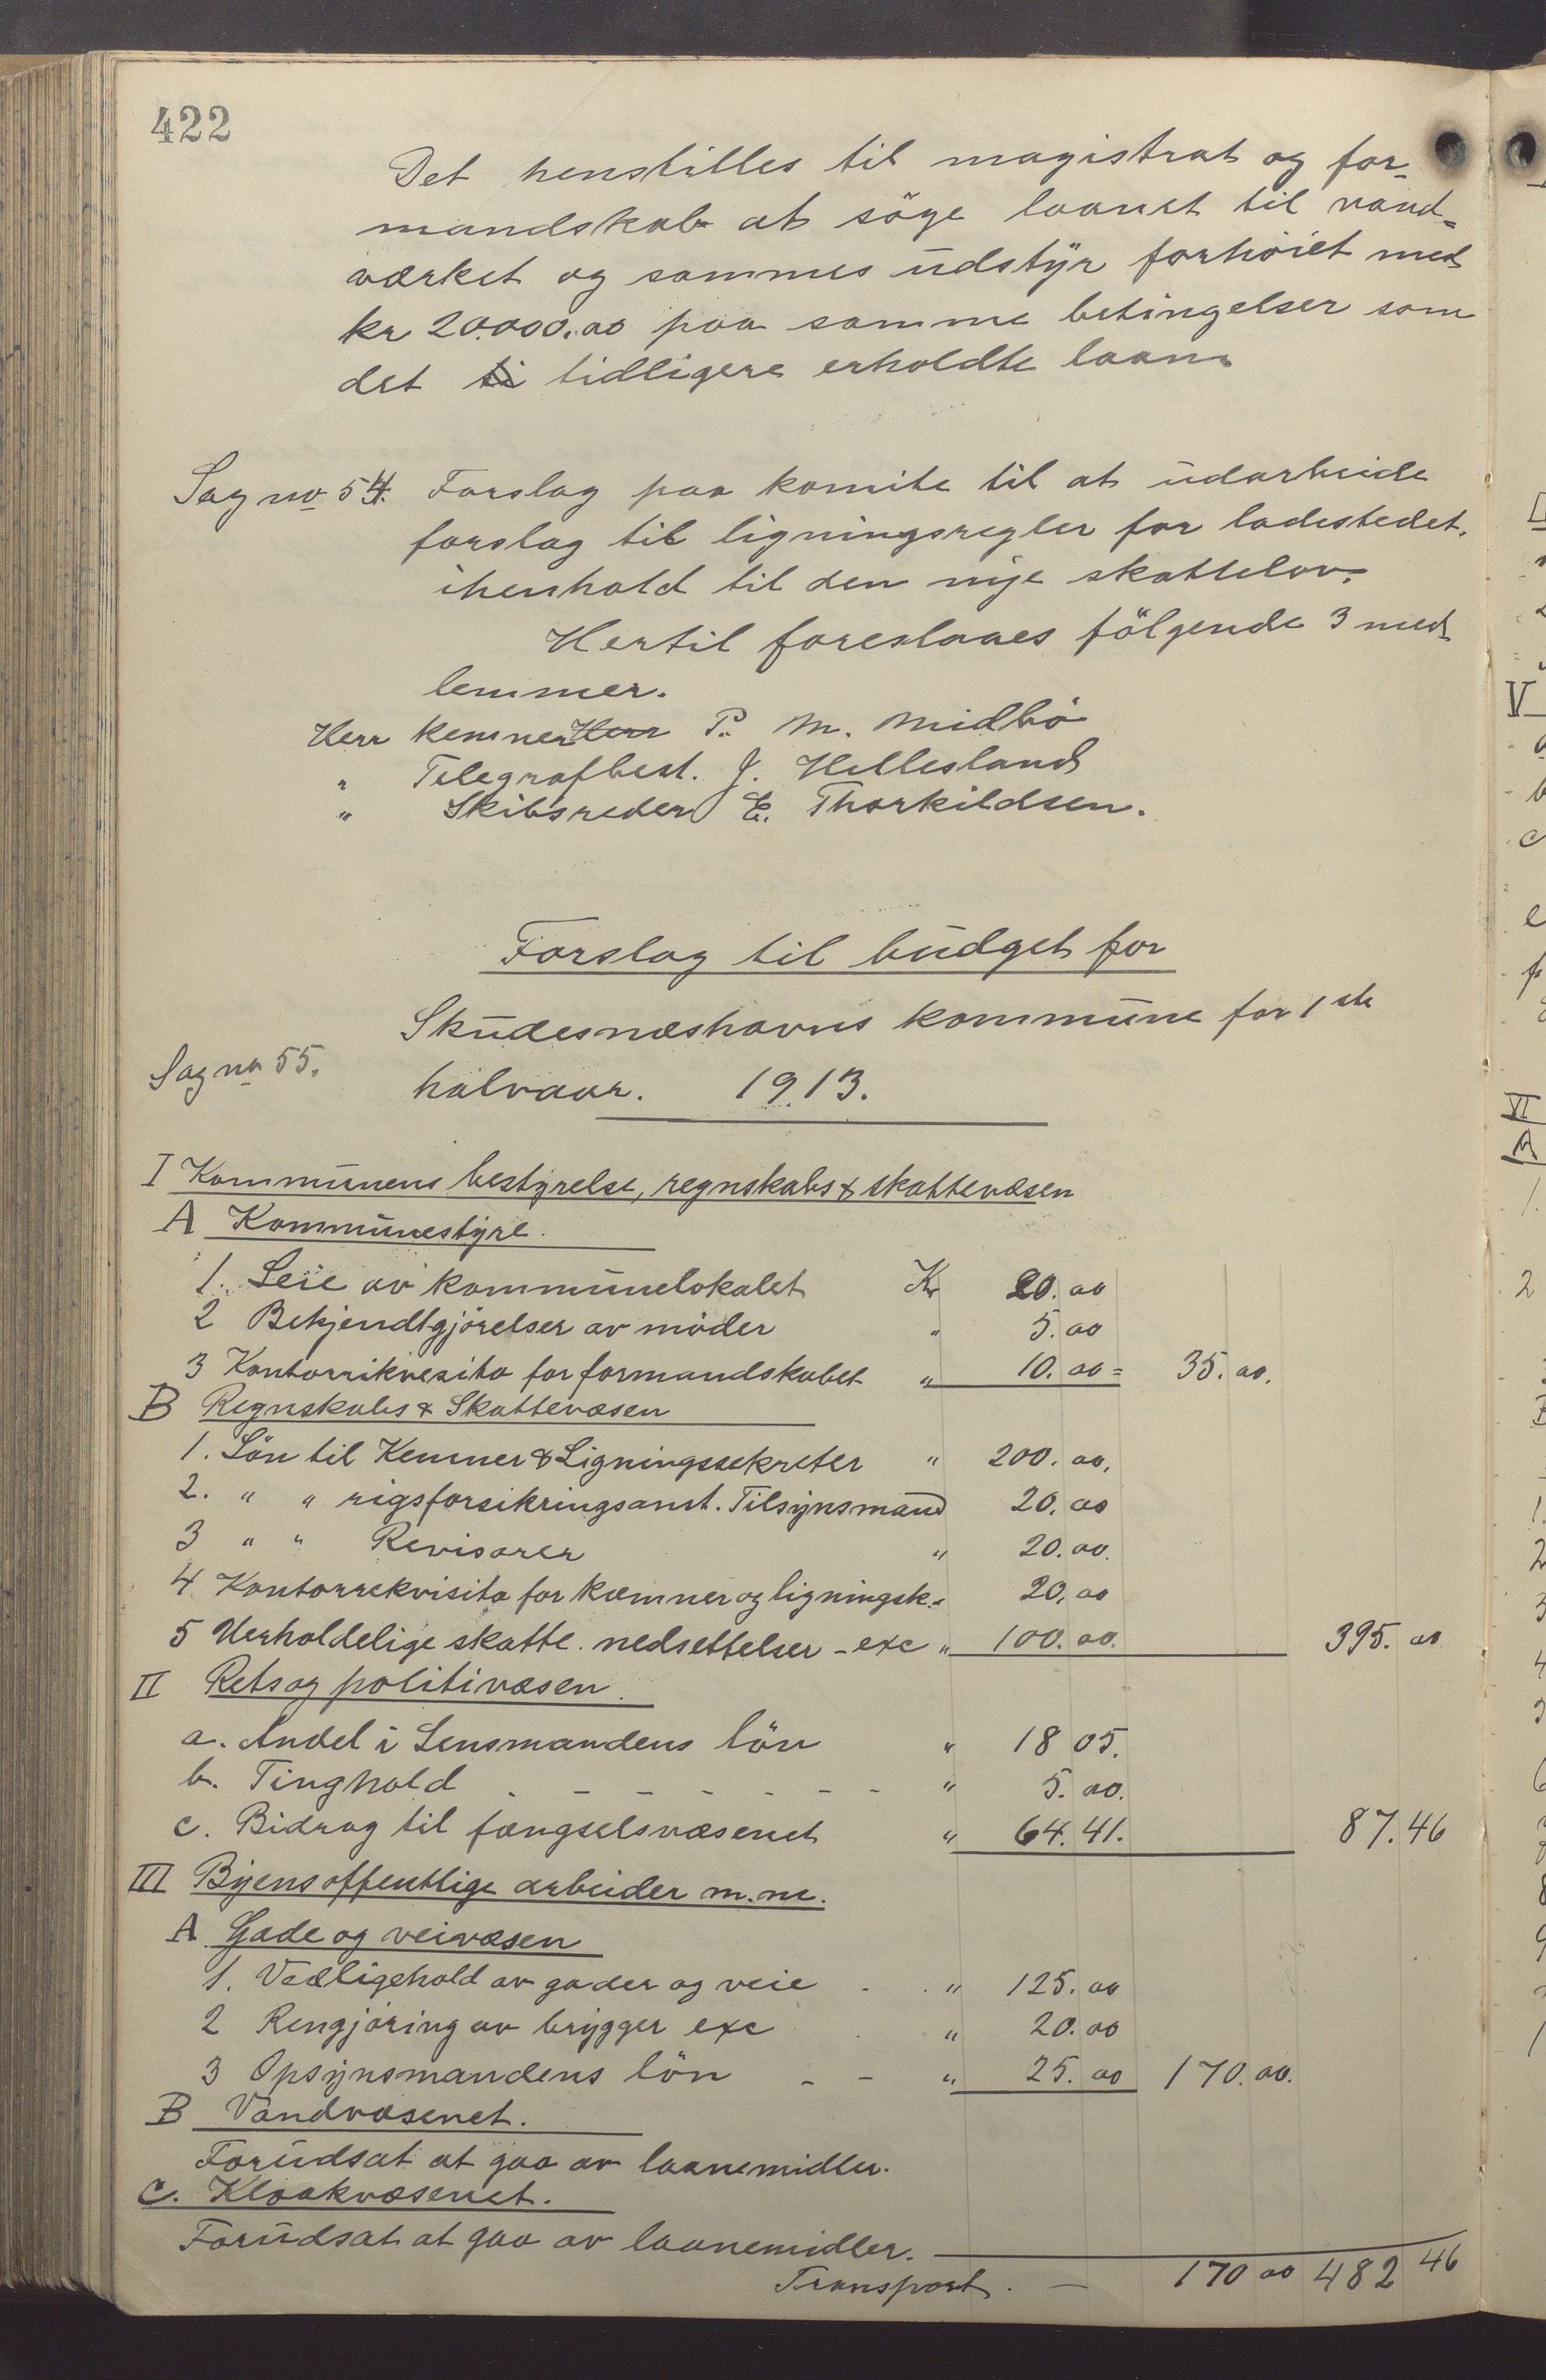 422
Det henstilles til magistrat og for-
mandskab at söge laanet til vand-
værket og sammes udstyr forhöiet med
kr 20.000.00 paa samme betingelser som
det ti tidligere erholdte laan
Sag no 54. Forslag paa komite til at udarbeide
forslag til ligningsregler for ladestedet.
ihenhold til den nye skattelov.
Hertil foreslaaes fölgende 3 med
lemmer.
Herr kemner Herr P. M. Midbö
" Telegrafbest. J. Hellesland
" Skibsreder E. Thorkildsen.
Forslag til budget for
Skudesnæshavns kommune for 1ste
Sag no 55. halvaar. 1913.
I Kommunens bestyrelse, regnskabs & skattevæsen
A Kommunestyre.
1. Leie av kommunelokalet Kr 20.00
2 Bekjendtgjörelser av möder " 5.00
3 Kontorrikvesita for formandskabet " 10.00 = 35.00.
B Regnskabs & Skattevæsen
1. Lön til Kemner & Ligningssekretær " 200.00.
2. " " rigsforsikringsanst. Tilsynsmand 20.00
3 " " Revisorer " 20.00.
4 Kontorrekvisita for kæmner og ligningsk. " 20.00
5 Uerholdelige skatte. nedsettelser - exc " 100.00. 395.00
II Rets og politivæsen.
a. Andel i Lensmandens lön " 18 05.
b. Tinghold - - - - - - " 5.00.
c. Bidrag til fængselsvæsenet " 64.41. 87.46
III Byens offentlige arbeider m.m.
A Gade og veivæsen
1. Vedligehold av gader og veie - . " 125.00
2 Rengjöring av brygger exc " 20.00
3 Opsynsmandens lön - - " 25.00 170.00.
B Vandvæsenet.
Forudsat at gaa av laanemidler.
C. Kloakvæsenet.
Forudsat at gaa av laanemidler.
Transport. - 170 00 482 46